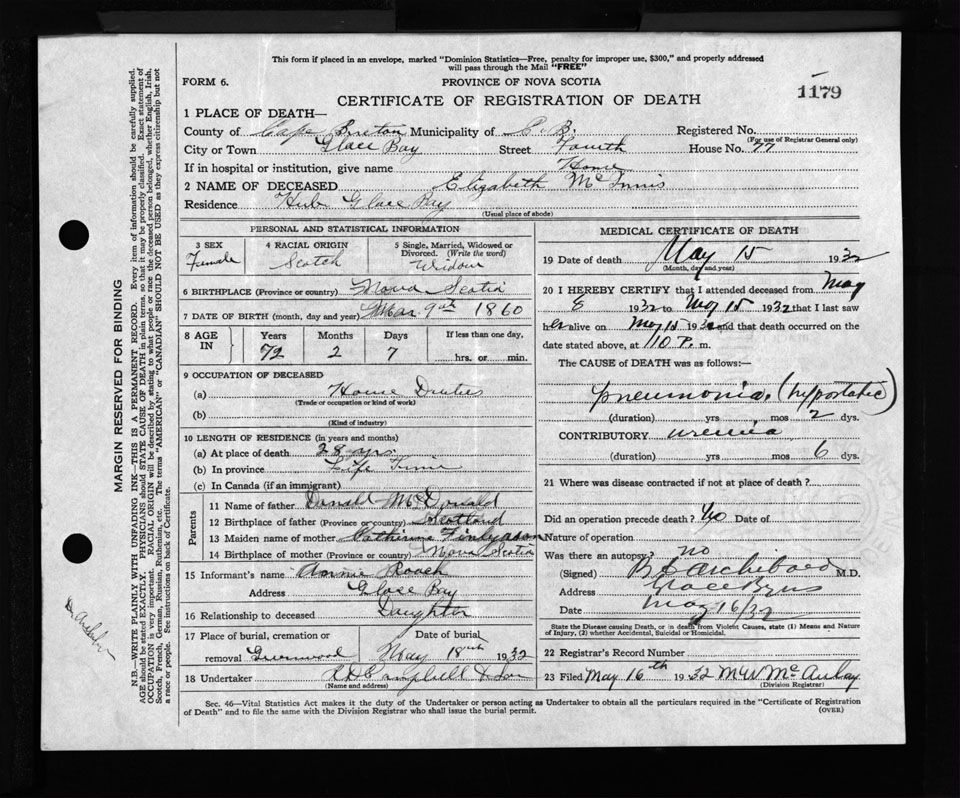 This form if placed in an envelope, marked "Dominion Statistics—Free, penalty for improper use, $300," and properly addressed
will pass through the Mail "FREE"
FORM 6.
PROVINCE OF NOVA SCOTIA
1179
CERTIFICATE OF REGISTRATION OF DEATH
1 PLACE OF DEATH—
County of Cape Breton Municipality of C. B. Registered No.
(For use of Registrar General only)
City or Town Glace Bay Street Fourth House No. 77
If in hospital or institution, give name Home
2 NAME OF DECEASED Elizabeth McInnis
Residence Hub Glace Bay
(Usual place of abode)
PERSONAL AND STATISTICAL INFORMATION
3 SEX
Female
4 RACIAL ORIGIN
Scotch
5 Single, Married, Widowed or
Divorced. (Write the word)
Widow
6 BIRTHPLACE (Province or country) Nova Scotia
7 DATE OF BIRTH (month, day and year) Mar 9th 1860
8 AGE
IN
Years
72
Months
2
Days
7
If less than one day,
hrs. or min.
9 OCCUPATION OF DECEASED
(a) Home Duties
(Trade or occupation or kind of work)
(b)
(Kind of industry)
10 LENGTH OF RESIDENCE (in years and months)
(a) At place of death 28 yrs.
(b) In province Life Time
(c) In Canada (if an immigrant)
Parents
11 Name of father Donald McDonald
12 Birthplace of father (Province or country) Scotland
13 Maiden name of mother Catherine Finlyason
14 Birthplace of mother (Province or country) Nova Scotia
15 Informant's name Annie Roach
Address Glace Bay
16 Relationship to deceased Daughter
17 Place of burial, cremation or
removal Greenwood
Date of burial
May 18th 1932
18 Undertaker Campbell & Son
(Name and address)
MEDICAL CERTIFICATE OF DEATH
19 Date of death May 15 1932
(Month, day and year)
20 I HEREBY CERTIFY that I attended deceased from May
1932 to May 15 1932 that I last saw
her alive on May 15 1932 and that death occurred on the
date stated above, at 110 P. m.
The CAUSE OF DEATH was as follows:—
pneumonia. (hypostatic)
(duration) yrs mos 2 dys.
CONTRIBUTORY uremia
(duration) yrs mos 6 dys.
21 Where was disease contracted if not at place of death?
Did an operation precede death? No Date of
Nature of operation
Was there an autopsy? no
(Signed) Archibald M.D.
Address Glace Bay
Date May 16/32
State the Disease causing Death, or in death from Violent Causes, state (1) Means and Nature
of Injury, (2) whether Accidental, Suicidal or Homicidal.
22 Registrar's Record Number
23 Filed May 16th 1932 McAulay
(Division Registrar)
Sec. 46—Vital Statistics Act makes it the duty of the Undertaker or person acting as Undertaker to obtain all the particulars required in the "Certificate of Registration
of Death" and to file the same with the Division Registrar who shall issue the burial permit.
(OVER)
MARGIN RESERVED FOR BINDING
N.B.—WRITE PLAINLY WITH UNFADING INK—THIS IS A PERMANENT RECORD. Every item of information should be carefully supplied.
AGE should be stated EXACTLY. PHYSICIANS should STATE CAUSE OF DEATH in plain terms, so that it may be properly classified. Exact statement of
OCCUPATION is very important. RACIAL ORIGIN will be described by stating to what people or race the deceased person belonged, whether English, Irish,
Scotch, French, German, Russian, Ruthenian, etc. The terms "AMERICAN" or "CANADIAN" SHOULD NOT BE USED as they express citizenship but not
a race or people. See instructions on back of Certificate.